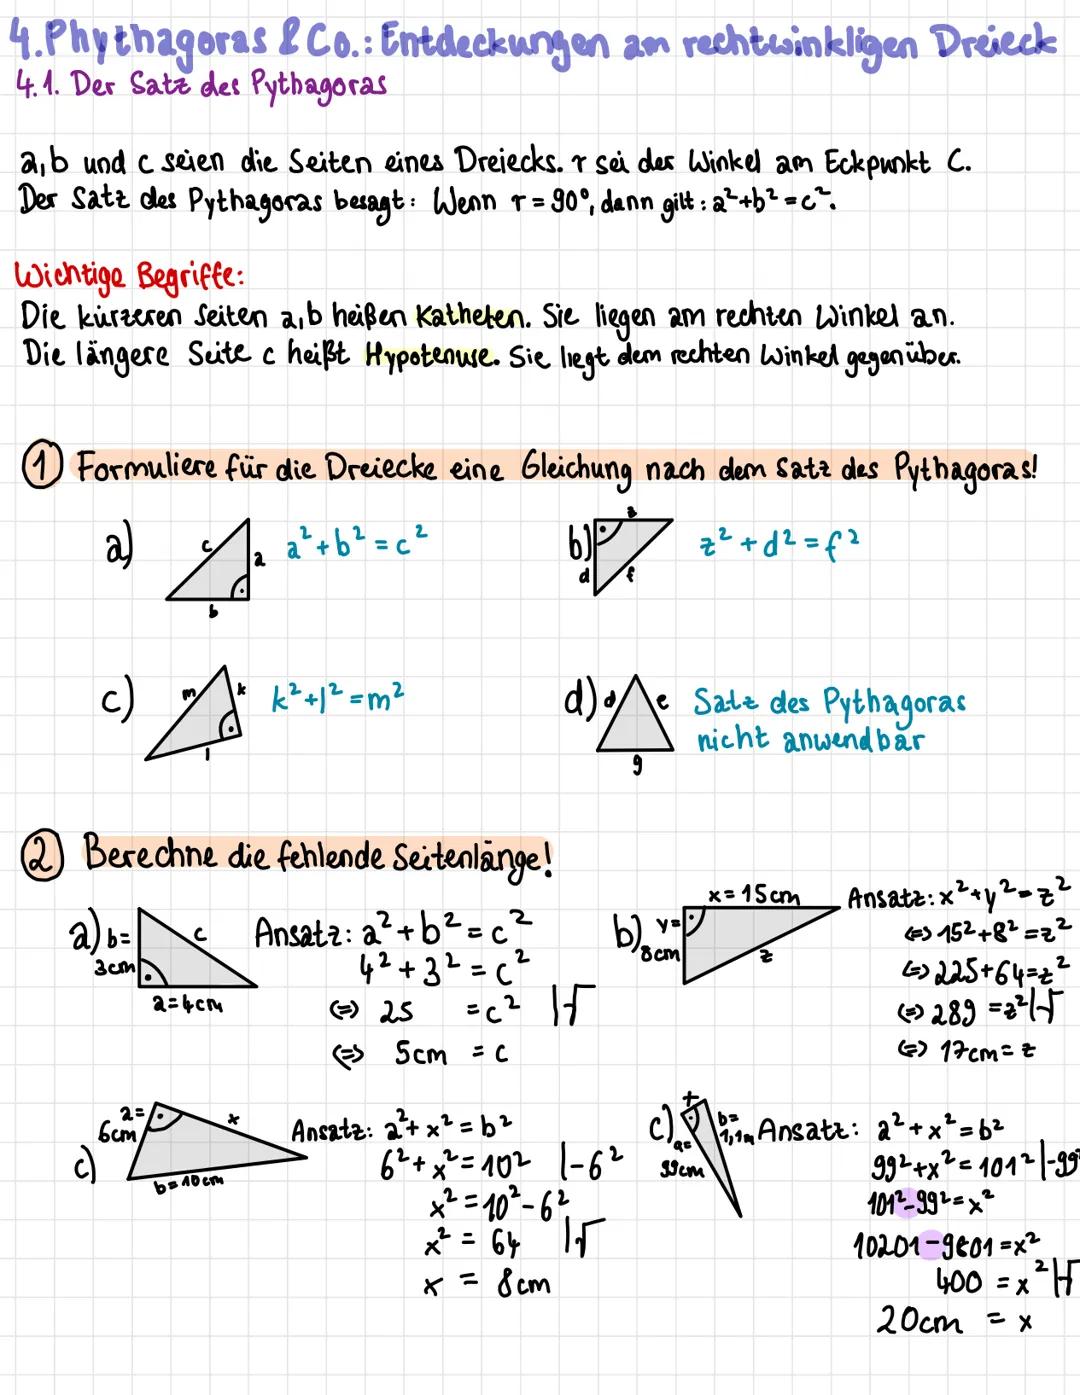 4. Phythagoras & Co.: Entdeckungen am rechtwinkligen Dreieck
4.1. Der Satz des Pythagoras
a, b und c seien die Seiten eines Dreiecks. γ sei der Winkel am Eckpunkt C.
Der Satz des Pythagoras besagt: Wenn γ = 90°, dann gilt: a² + b² = c².
Wichtige Begriffe:
Die kürzeren Seiten a, b heißen Katheten. Sie liegen am rechten Winkel an.
Die längere Seite c heißt Hypotenuse. Sie liegt dem rechten Winkel gegenüber.
① Formuliere für die Dreiecke eine Gleichung nach dem Satz des Pythagoras!
a) c a b a² + b² = c²
b) z d f z² + d² = f²
c) m k l k² + l² = m²
d) d e g Satz des Pythagoras
nicht anwendbar
② Berechne die fehlende Seitenlänge!
a) b= 3cm c a = 4cm
Ansatz: a² + b² = c²
4² + 3² = c²
⇔ 25 = c² |√
⇔ 5cm = c
b) x = 15cm y = 8cm z
Ansatz: x² + y² = z²
⇔ 15² + 8² = z²
⇔ 225 + 64 = z²
⇔ 289 = z² |√
⇔ 17cm = z
c) a= 6cm x b = 10cm
Ansatz: a² + x² = b²
6² + x² = 10² |-6²
x² = 10² - 6²
x² = 64 |√
x = 8cm
c) x a= 99cm b= 1,1m
Ansatz: a² + x² = b²
99² + x² = 101² |-99²
101² - 99² = x²
10201 - 9801 = x²
400 = x² |√
20cm = x